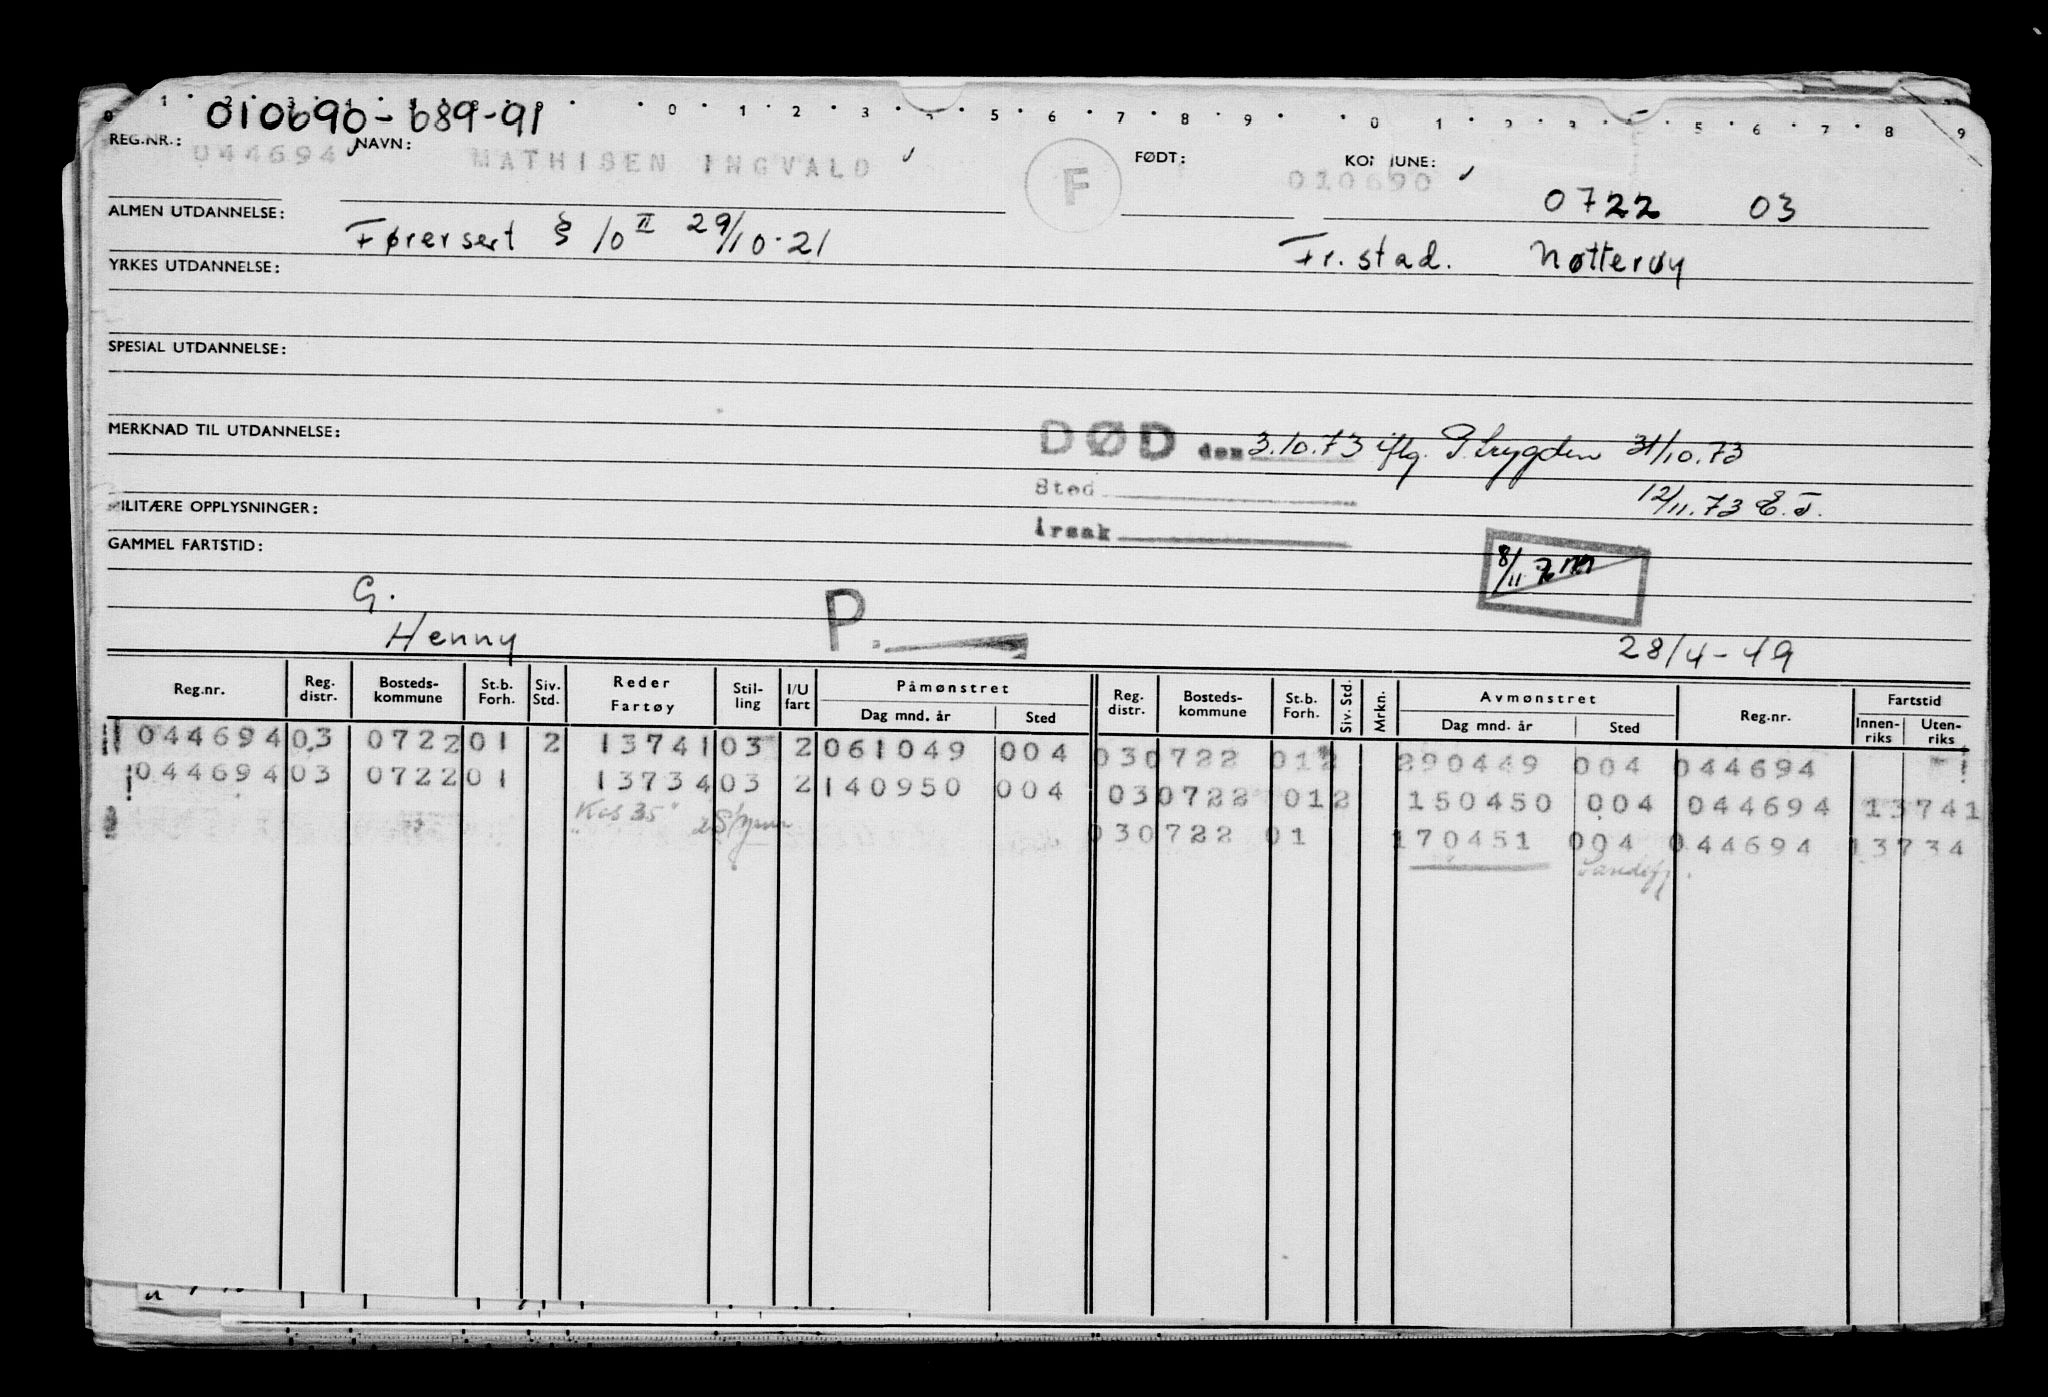 0 1 2 3 0 1 2 3 5 6 7 8 9 0 1 5 6 7 8 9
010690-689-91
REG.NR.: 044694 NAVN: MATHISEN INGVALD F FØDT: KOMMUNE: 010690
0722 03
ALMEN UTDANNELSE: Førersert § 10 II 29/10.21 Fr.stad. Nøtterøy
YRKES UTDANNELSE:
SPESIAL UTDANNELSE:
MERKNAD TIL UTDANNELSE: DØD den 3.10.73 iflg. P.trygden 31/10.73
Sted 12/11.73 E.T.
MILITÆRE OPPLYSNINGER: Årsak
GAMMEL FARTSTID: 8/11
G.
Henny P. 28/4-49
Reg.nr. Reg. distr. Bosteds- kommune St.b. Forh. Siv. Std. Reder Fartøy Stil- ling I/U fart Påmønstret Dag mnd. år Sted Reg. distr. Bosteds- kommune St.b. Forh. Siv. Std. Mrkn. Avmønstret Dag mnd. år Sted Reg.nr. Fartstid Innen- riks Uten- riks
044694 03 0722 01 2 13741 03 2 061049 004 03 0722 01 2 290449 004 044694
044694 03 0722 01 13734 03 2 140950 004 03 0722 01 2 150450 004 044694 13741
Kos 35 03 0722 01 170451 004 044694 13734
Sandefj.